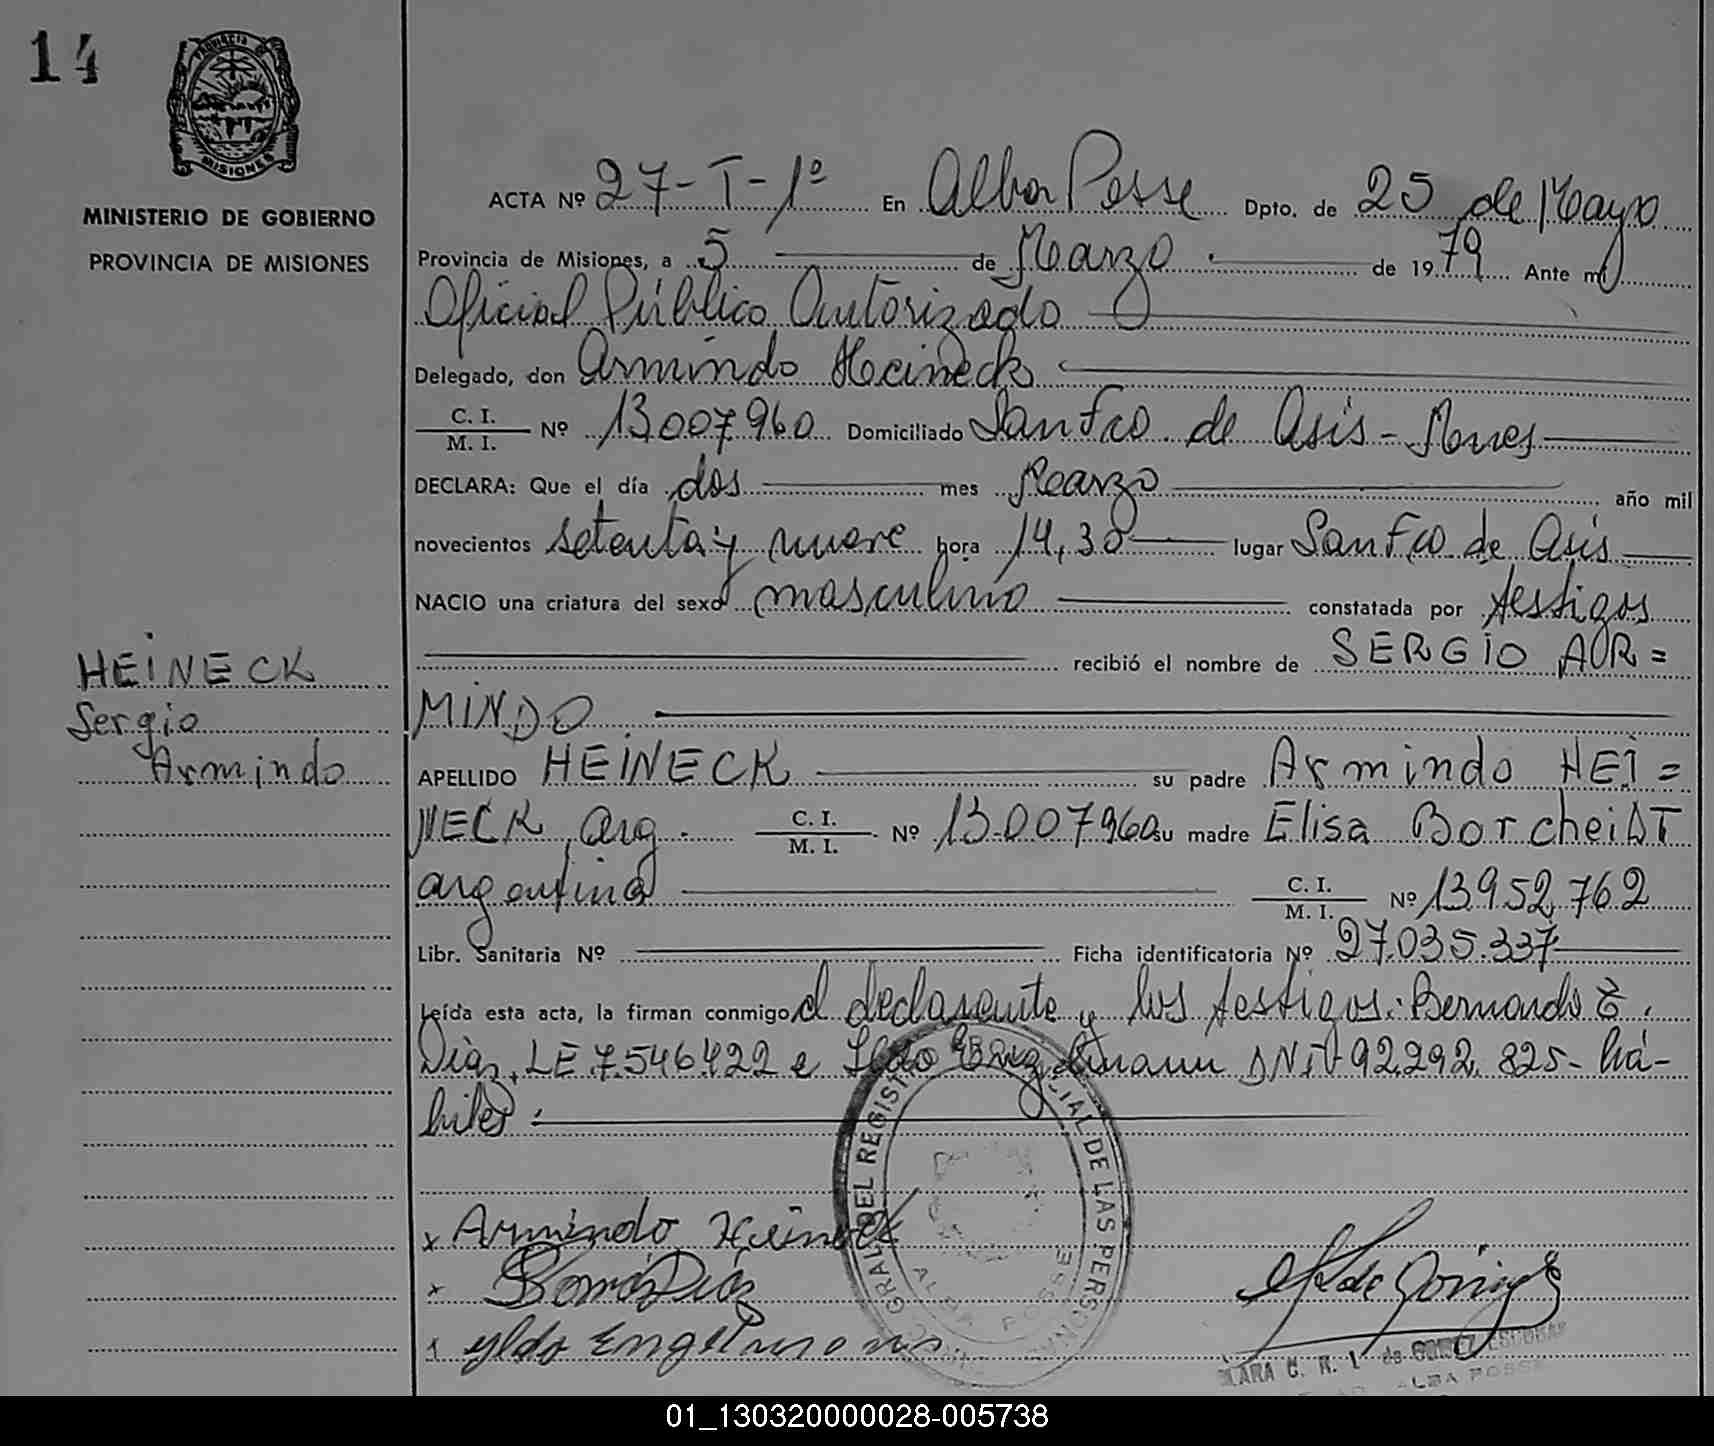 14
PROVINCIA DE
MISIONES
MINISTERIO DE GOBIERNO
PROVINCIA DE MISIONES
HEINECK
Sergio
Armindo
ACTA Nº 27-T-1º En Alba Posse Dpto. de 25 de Mayo
Provincia de Misiones, a 5 de Marzo de 1979 Ante mí
Oficial Público Autorizado
Delegado, don Armindo Heineck
C. I.
M. I. Nº 13.007.960 Domiciliado San Fco. de Asís - Mnes
DECLARA: Que el día dos mes Marzo año mil
novecientos setenta y nueve hora 14,30 lugar San Fco. de Asis
NACIO una criatura del sexo masculino constatada por testigos
recibió el nombre de SERGIO AR=
MINDO
APELLIDO HEINECK su padre Armindo HEI=
NECK, arg. C. I.
M. I. Nº 13.007.960 su madre Elisa BorcheiDT
argentina C. I.
M. I. Nº 13.952.762
Libr. Sanitaria Nº Ficha identificatoria Nº 27.035.337
Leída esta acta, la firman conmigo el declarante y los testigos: Bernardo E.
Diaz, LE 7.546.422 e Ildo Engelmann DNI 92.292.825- há-
biles
GRAL DEL REGIST CIAL DE LAS PERSONAS
ALBA POSSE
x Armindo Heineck
x Díaz
x yldo Engelmann
CLARA C. R. L. de GOMEZ ESCOBAR
ALBA POSSE
01_130320000028-005738